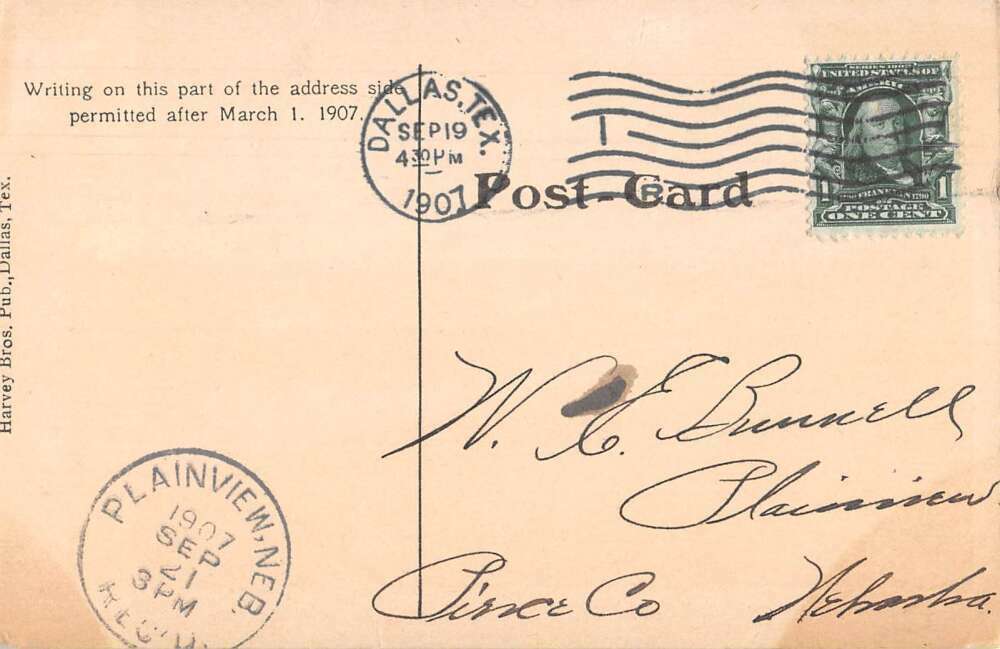 Writing on this part of the address side
permitted after March 1. 1907.
DALLAS, TEX.
SEP 19
4 30 PM
1907
1
Post-Card
SERIES 1902
UNITED STATES OF
AMERICA
1 1
POSTAGE
ONE CENT
Harvey Bros. Pub., Dallas, Tex.
W. E. Bunnell
Plainview
Pierce Co Nebraska.
PLAINVIEW, NEB.
1907
SEP
21
3 PM
REC'D.